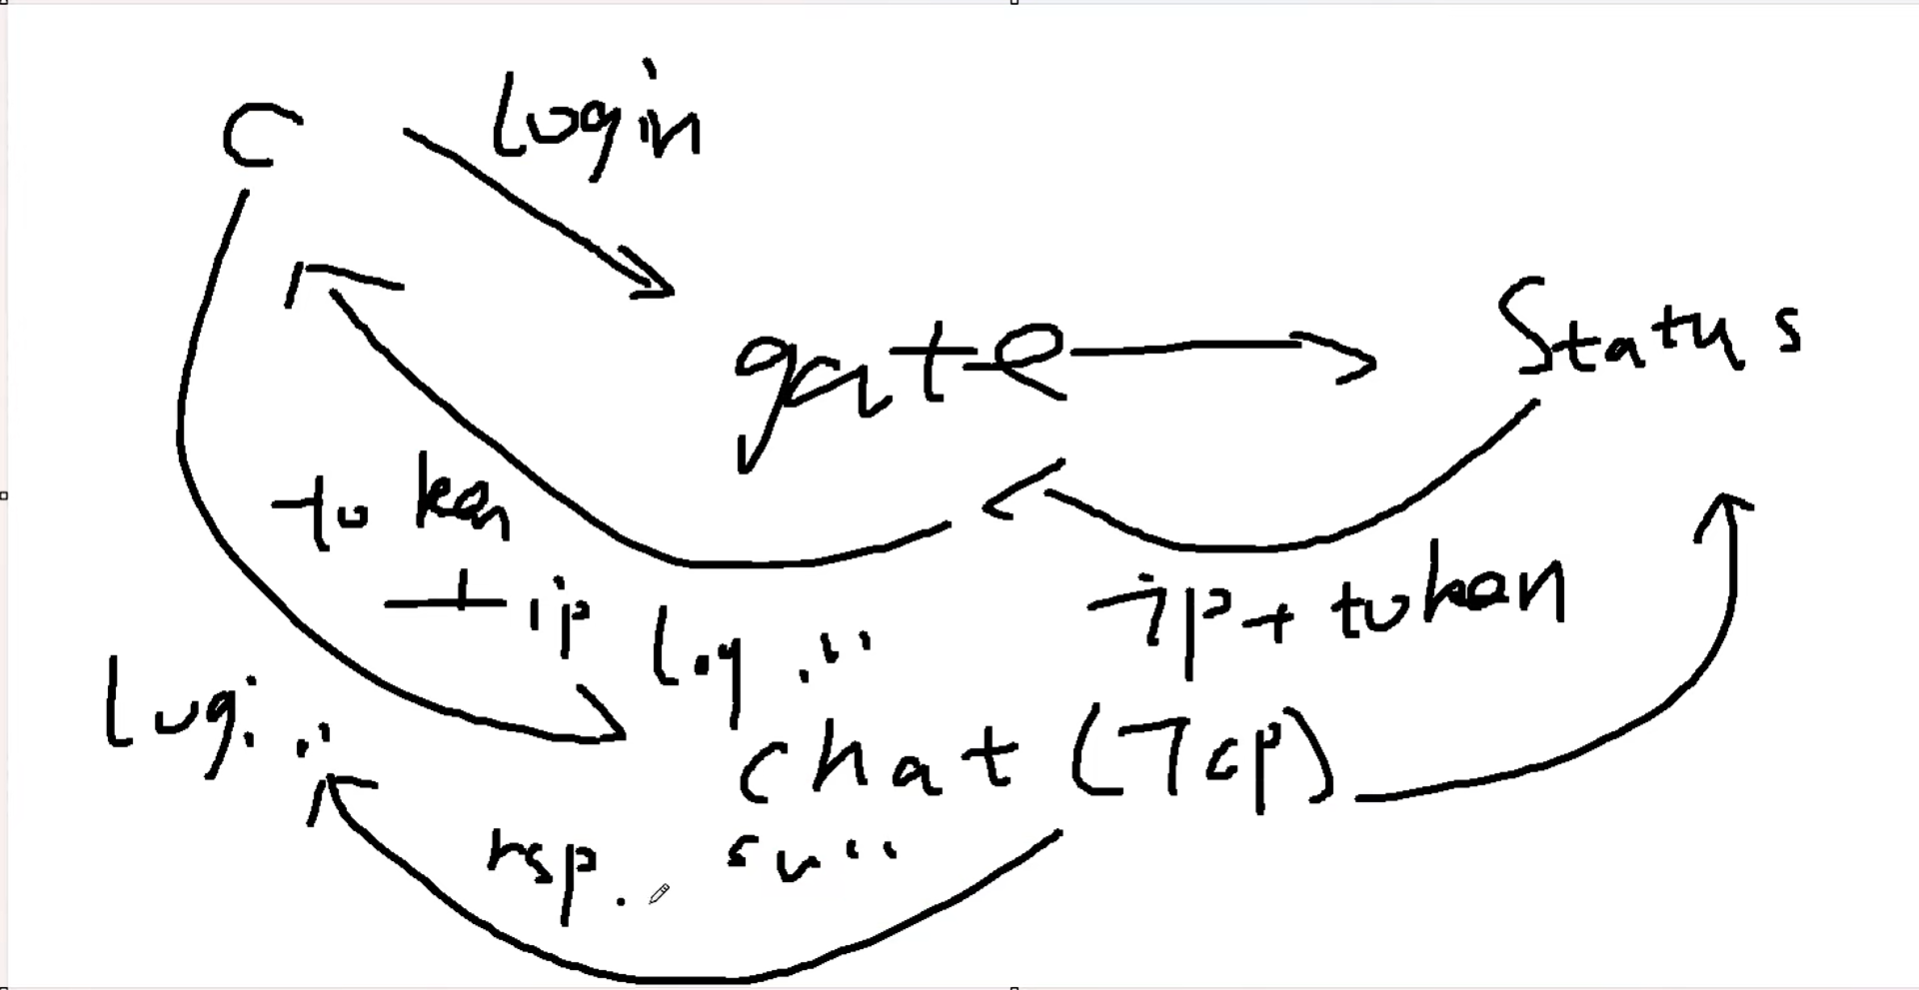 C
Login
gate
Status
token
+ip
ip+token
Log...
Logi...
Chat (Tcp)
rsp.
su...